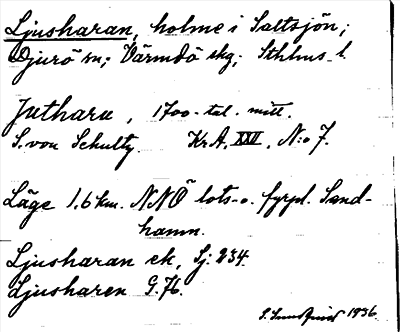 Ljusharan, holme i Saltsjön;
Djurö sn; Värmdö skg; Sthlms l.
Jutharu, 1700-tal. mitt.
S. von Schultz. Kr. A. XXVI. N:o 7.
Läge 1.6 km. NNÖ lots- o. fyrpl. Sand-
hamn.
Ljusharan ek, Sj: 234.
Ljusharen G.K.
1936.